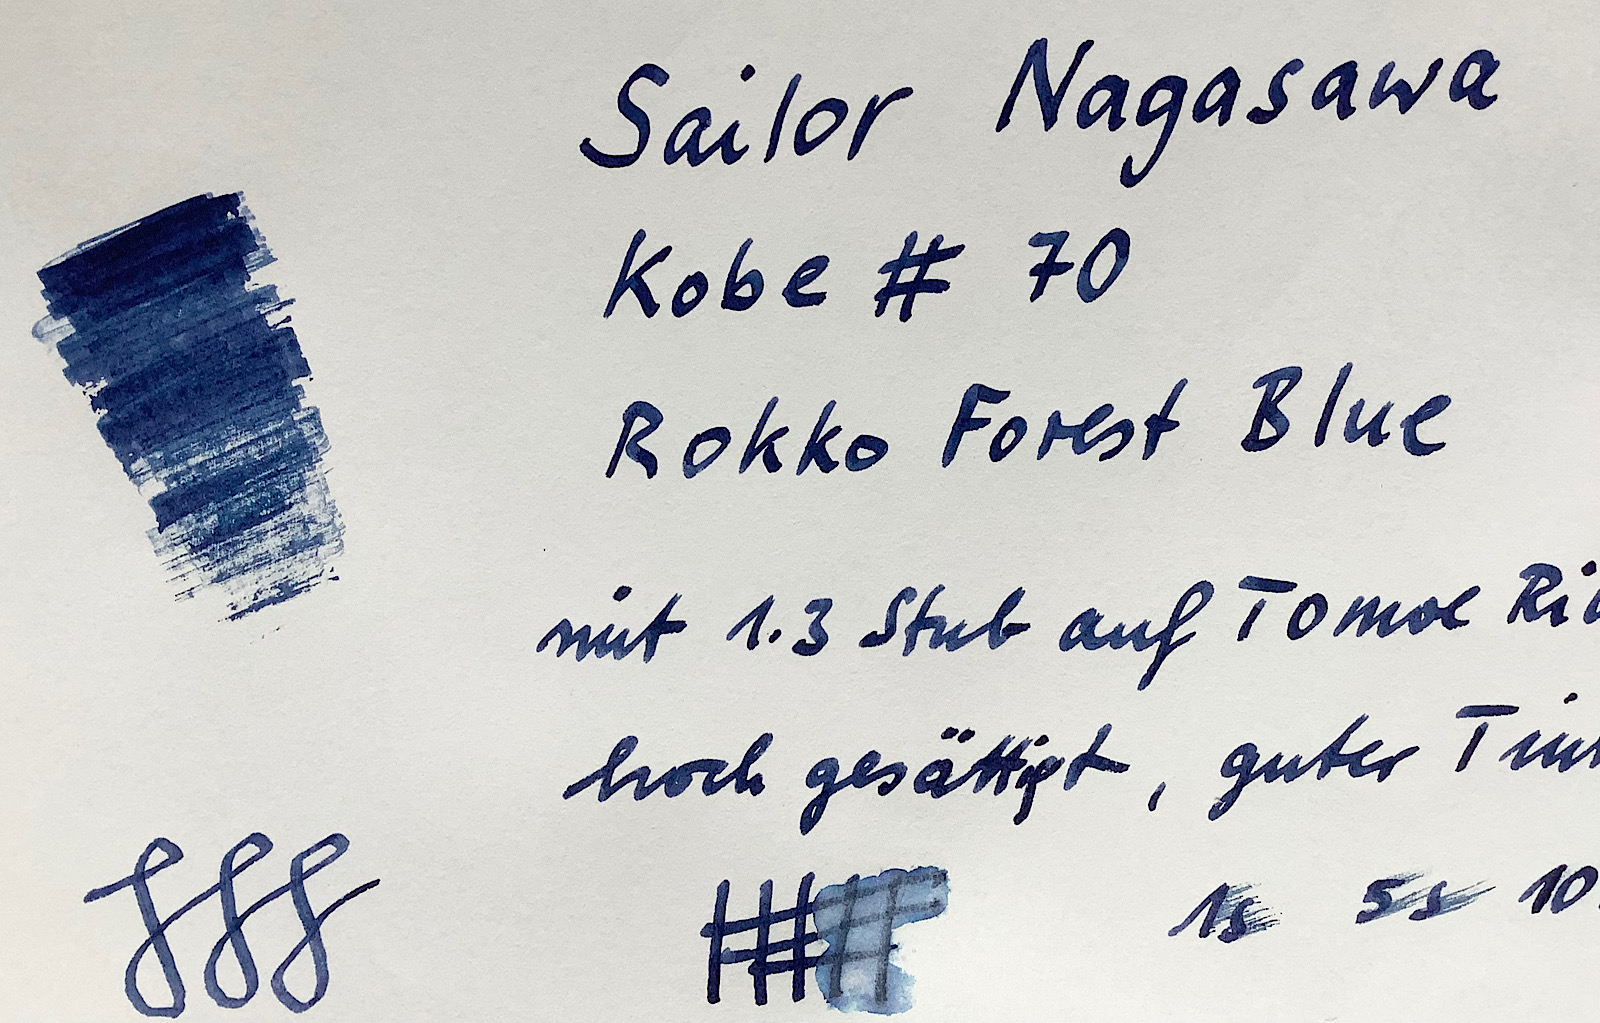 Sailor Nagasawa
Kobe # 70
Rokko Forest Blue
mit 1.3 Stub auf Tomoe
hoch gesättigt, guter
1s 5s 10